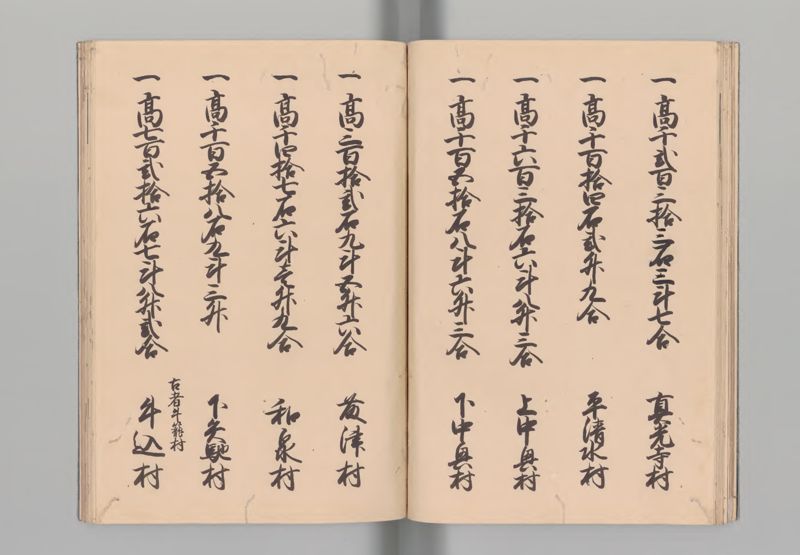 一 高千弐百三拾三石三斗七合 真光寺村
一 高千百拾四石弐升九合 平清水村
一 高千六百三拾石六斗八升三合 上中興村
一 高千百五拾石八斗六升三合 下中興村
一 高三百拾弐石九斗五升六合 津村
一 高千四拾七石六斗壱升九合 和泉村
一 高千百五拾八石九斗三升 下矢馳村
古者牛籠村
一 高七百弐拾六石七斗八升弐合 牛込村